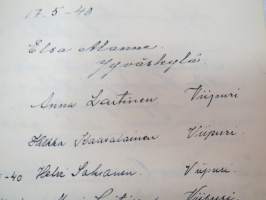 17.5-40
Elsa Alanne
Jyväskylä
Anna Lartinen Viipuri
Hilkka Kaasalainen Viipuri.
-40 Helvi Sahanen. Viipuri
Viipuri